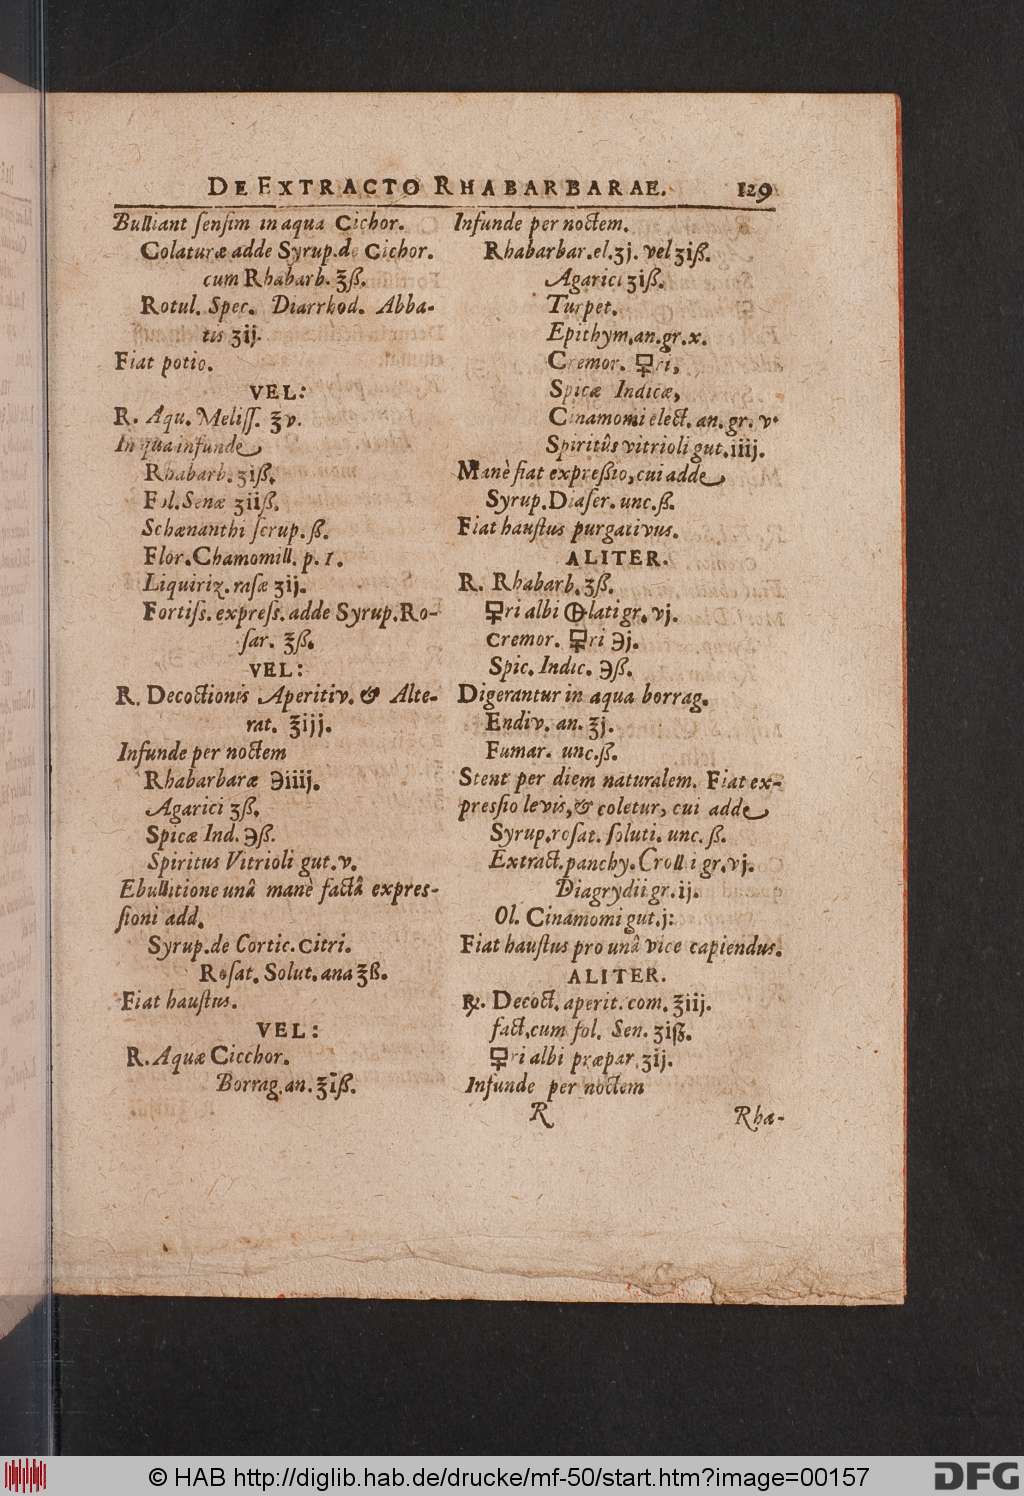 DE EXTRACTO RHABARBARAE. 129
Bulliant ſenſim in aqua Cichor.
Colaturæ adde Syrup. de Cichor.
cum Rhabarb. ℥ß.
Rotul. Spec. Diarrhod. Abba-
tis ʒij.
Fiat potio.
VEL:
R. Aqu. Meliſſ. ℥v.
In qua infunde
Rhabarb. ʒiß.
Fol. Senæ ʒiiß.
Schœnanthi ſcrup. ß.
Flor. Chamomill. p. 1.
Liquiriz. raſæ ʒij.
Fortiſs. expreſs. adde Syrup. Ro-
ſar. ℥ß.
VEL:
R. Decoctionis Aperitiv. & Alte-
rat. ℥iij.
Infunde per noctem
Rhabarbaræ ℈iiij.
Agarici ʒß.
Spicæ Ind. ℈ß.
Spiritus Vitrioli gut. v.
Ebullitione unâ manè factâ expres-
ſioni add.
Syrup. de Cortic. Citri.
Roſat. Solut. ana ℥ß.
Fiat hauſtus.
VEL:
R. Aquæ Cicchor.
Borrag. an. ℥iß.
Infunde per noctem.
Rhabarbar. el. ʒj. vel ʒiß.
Agarici ʒiß.
Turpet.
Epithym. an. gr. x.
Cremor. 🜿ri,
Spicæ Indicæ,
Cinamomi elect. an. gr. v.
Spiritûs vitrioli gut. iiij.
Manè fiat expreßio, cui adde
Syrup. Diaſer. unc. ß.
Fiat hauſtus purgativus.
ALITER.
R. Rhabarb. ʒß.
🜿ri albi 🜨lati gr. vj.
Cremor. 🜿ri ℈j.
Spic. Indic. ℈ß.
Digerantur in aqua borrag.
Endiv. an. ℥j.
Fumar. unc. ß.
Stent per diem naturalem. Fiat ex-
preſſio levis, & coletur, cui adde
Syrup. roſat. ſoluti. unc. ß.
Extract. panchy. Crolli gr. vj.
Diagrydii gr. ij.
Ol. Cinamomi gut. j:
Fiat hauſtus pro unâ vice capiendus.
ALITER.
℞. Decoct. aperit. com. ℥iij.
fact. cum fol. Sen. ʒiß.
🜿ri albi præpar. ʒij.
Infunde per noctem
R Rha-
© HAB http://diglib.hab.de/drucke/mf-50/start.htm?image=00157
DFG